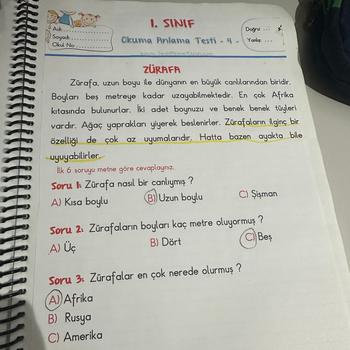 Adı :
Soyadı :
Okul No :
1. SINIF
Okuma Anlama Testi - 4 -
Doğru :
Yanlış :
ZÜRAFA
Zürafa, uzun boyu ile dünyanın en büyük canlılarından biridir.
Boyları beş metreye kadar uzayabilmektedir. En çok Afrika
kıtasında bulunurlar. İki adet boynuzu ve benek benek tüyleri
vardır. Ağaç yaprakları yiyerek beslenirler. Zürafaların ilginç bir
özelliği de çok az uyumalarıdır. Hatta bazen ayakta bile
uyuyabilirler.
İlk 6 soruyu metne göre cevaplayınız.
Soru 1: Zürafa nasıl bir canlıymış ?
A) Kısa boylu
B) Uzun boylu
C) Şişman
Soru 2: Zürafaların boyları kaç metre oluyormuş ?
A) Üç
B) Dört
C) Beş
Soru 3: Zürafalar en çok nerede olurmuş ?
A) Afrika
B) Rusya
C) Amerika